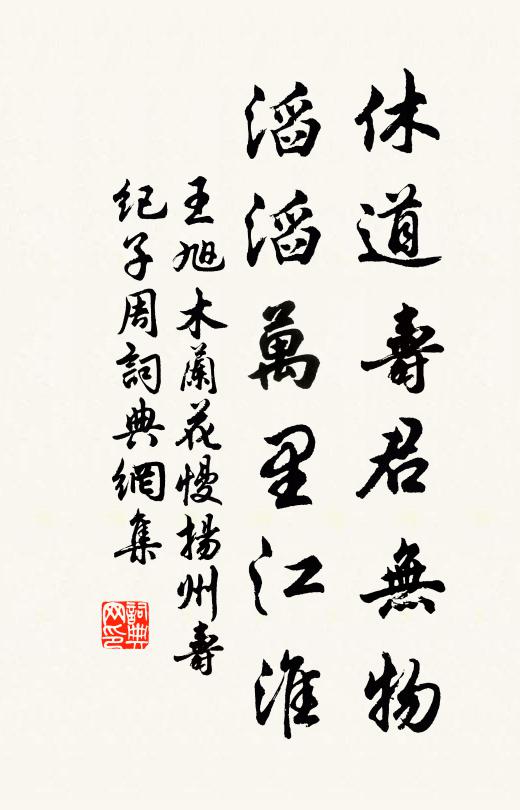 休道壽君無物
滔滔萬里江淮
王旭木蘭花慢揚州壽
紀子周詞典網集
詞典
网印